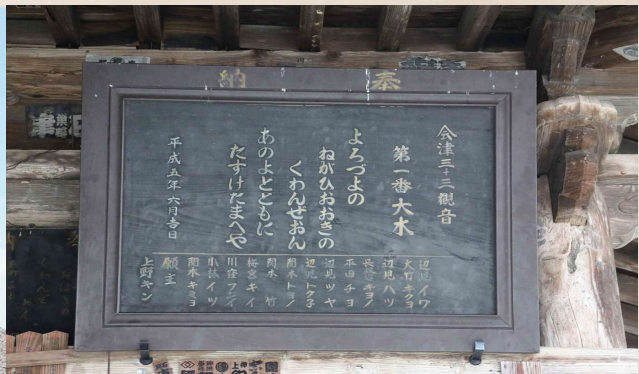 奉納
会津三十三観音
第一番大木
よろづよの
ねがひおおきの
くわんぜおん
あのよとともに
たすけたまへや
平成五年六月吉日
辺見イワ
大竹キクヨ
辺見ハツ
長谷キヨノ
平田チヨ
辺見ツヤ
辺見トク子
関本トヨノ
関本 竹
川窪フジイ
小林イツ
関本キミヨ
願主
上野キン